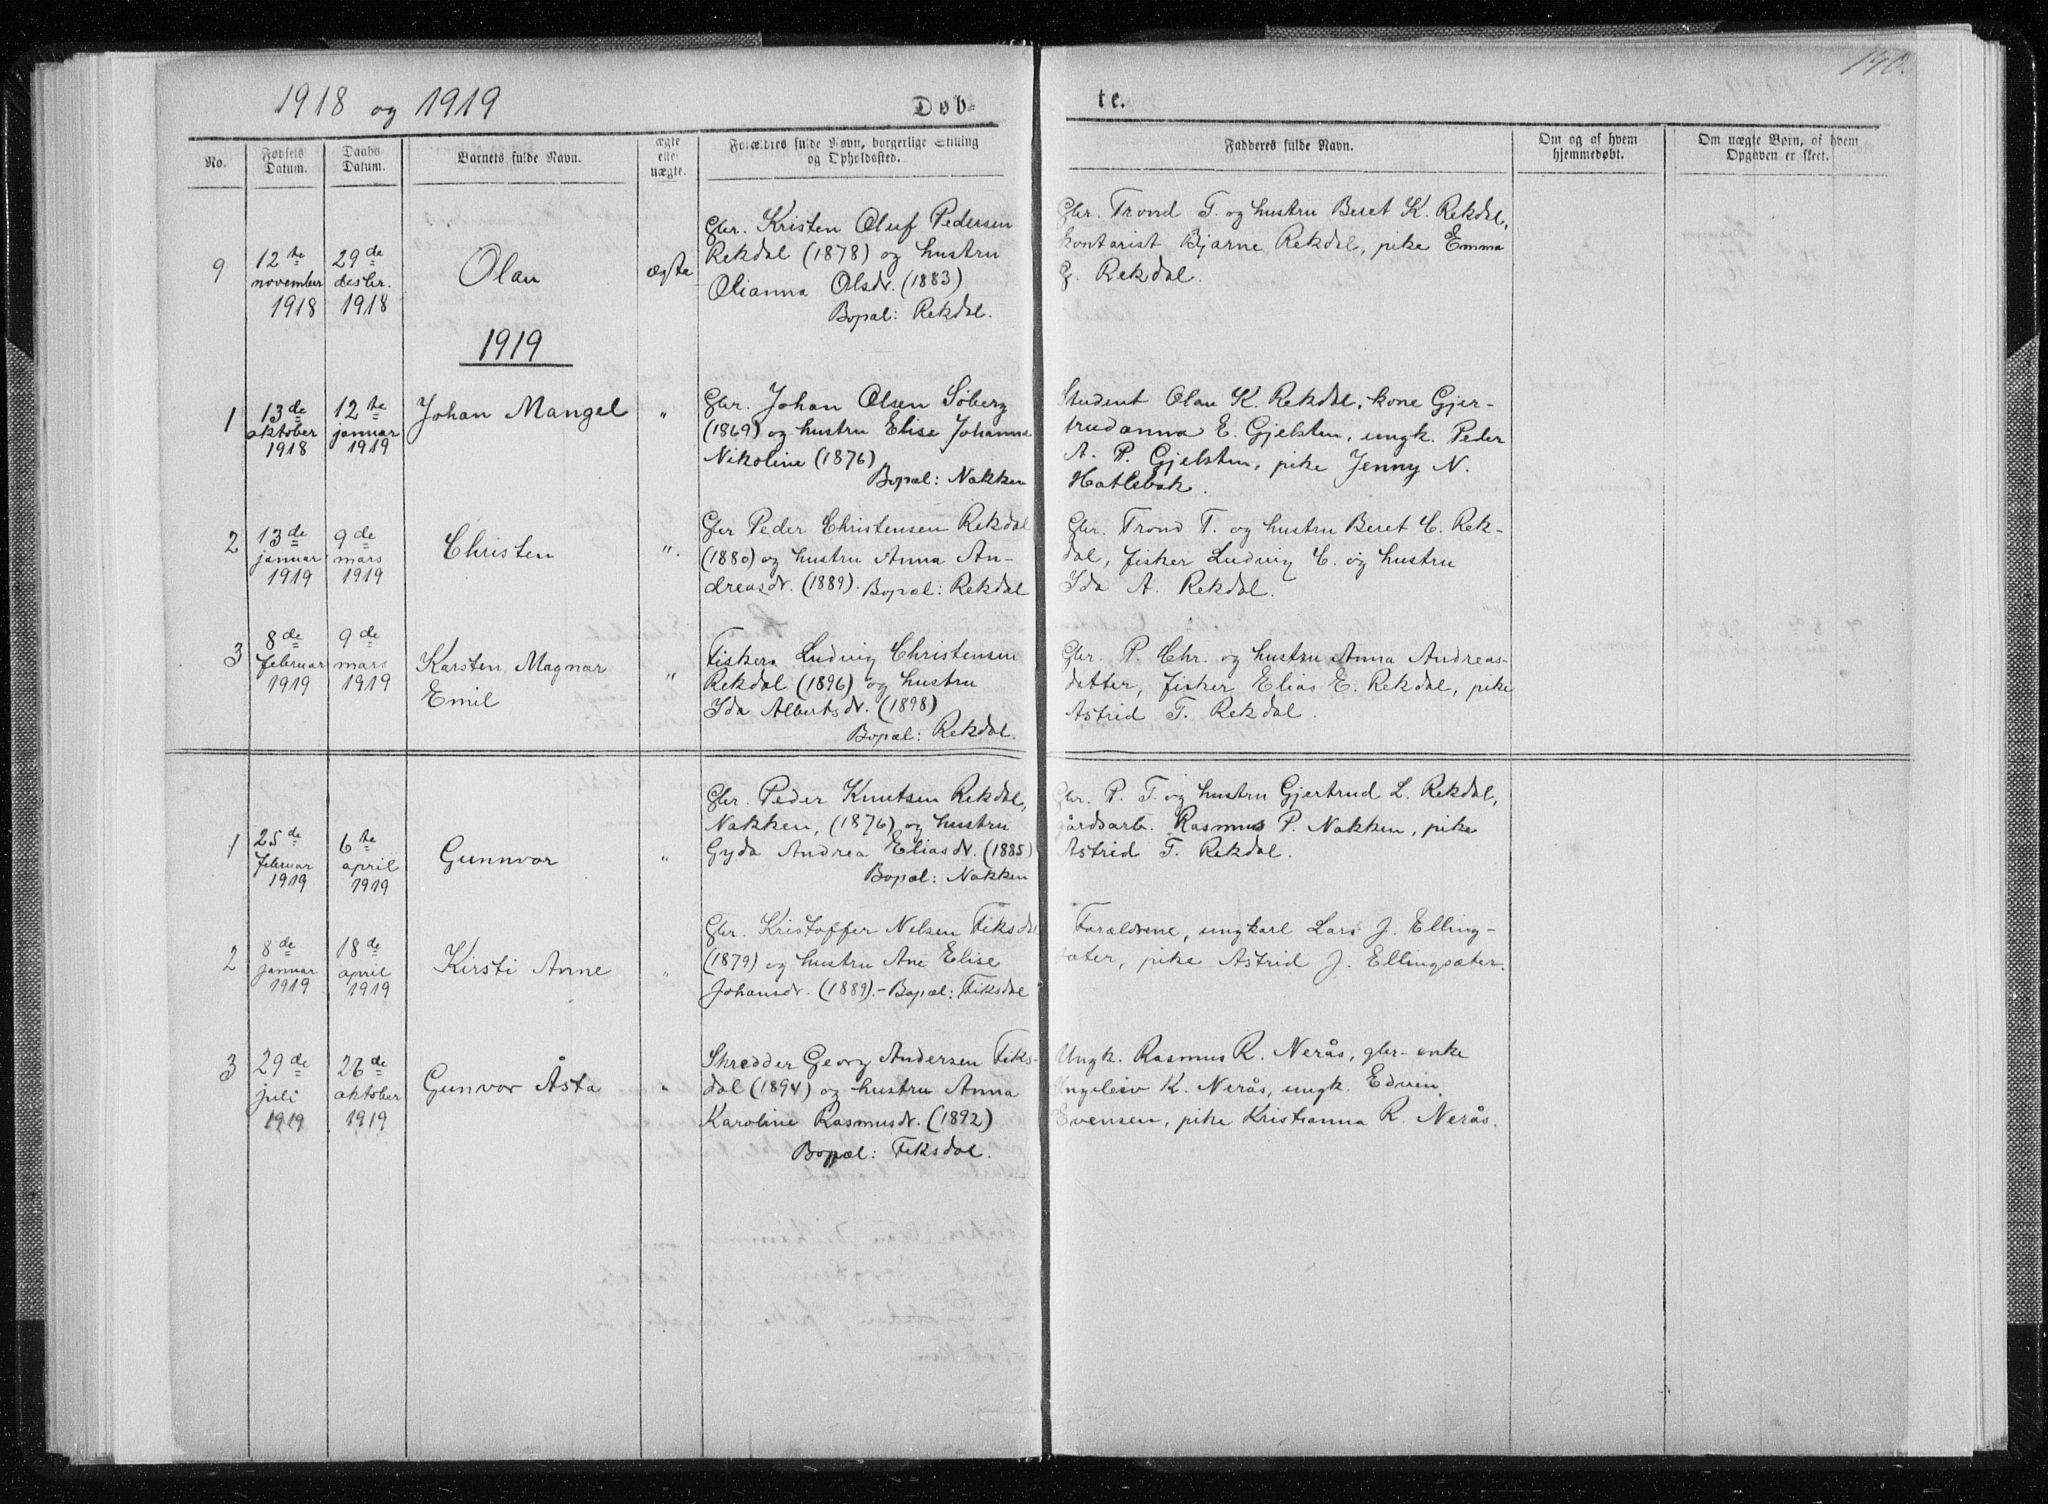 140.
1918 og 1919
Døb-
te.
No.
Fødsels Datum.
Daabs Datum.
Barnets fulde Navn.
ægte eller uægte.
Forældres fulde Navn, borgerlige Stilling og Opholdssted.
Fadderes fulde Navn.
Om og af hvem hjemmedøbt.
Om uægte Børn, af hvem Opgaven er skeet.
9
12te november 1918
29de desbr. 1918
Olav
ægte
Gbr. Kristen Oluf Pedersen
Rekdal (1878) og hustru
Olianna Olsdr. (1883)
Bopæl: Rekdal.
Gbr. Trond T. og hustru Beret K. Rekdal,
kontorist Bjarne Rekdal, pike Emma
G. Rekdal.
1919
1
13de oktober 1918
12te januar 1919
Johan Mangel
"
Gbr. Johan Olsen Søberg
(1869) og hustru Elise Johanna
Nikoline (1876)
Bopæl: Nakken
Student Olav K. Rekdal, kone Gjer-
trudanna E. Gjelsten, ungk. Peder
A. P. Gjelsten, pike Jenny N.
Hatlebak.
2
13de januar 1919
9de mars 1919
Christen
".
Gbr Peder Christensen Rekdal
(1880) og hustru Anna An-
dreasdr. (1889). Bopæl: Rekdal
Gbr. Trond T. og hustru Beret C. Rek-
dal, fisker Ludvig C. og hustru
Ida A. Rekdal.
3
8de februar 1919
9de mars 1919
Karsten Magnar
Emil
"
Fisker Ludvig Christensen
Rekdal (1896) og hustru
Ida Albertsdr. (1898)
Bopæl: Rekdal.
Gbr. P. Chr. og hustru Anna Andreas-
datter, fisker Elias E. Rekdal, pike
Astrid T. Rekdal.
1
25de februar 1919
6te april 1919
Gunnvor
"
Gbr. Peder Knutsen Rekdal,
Nakken, (1876) og hustru
Gyda Andrea Eliasdr. (1885)
Bopæl: Nakken
Gbr. P. T. og hustru Gjertrud L. Rekdal,
gårdsarb. Rasmus P. Nakken, pike
Astrid T. Rekdal.
2
8de januar 1919
18de april 1919
Kirsti Anne
"
Gbr. Kristoffer Nilsen Fiksdal
(1879) og hustru Ane Elise
Johansdr. (1889).- Bopæl: Fiksdal
Forældrene, ungkarl Lars J. Elling-
sæter, pike Astrid J. Ellingsæter.
3
29de juli 1919
26de oktober 1919
Gunvor Åsta
"
Skredder Georg Andersen Fiks-
dal (1894) og hustru Anna
Karoline Rasmusdr. (1892)
Bopæl: Fiksdal.
Ungk. Rasmus R. Nerås, gbr-enke
Ingeleiv K. Nerås, ungk. Edvin
Evensen, pike Kristianna R. Nerås.